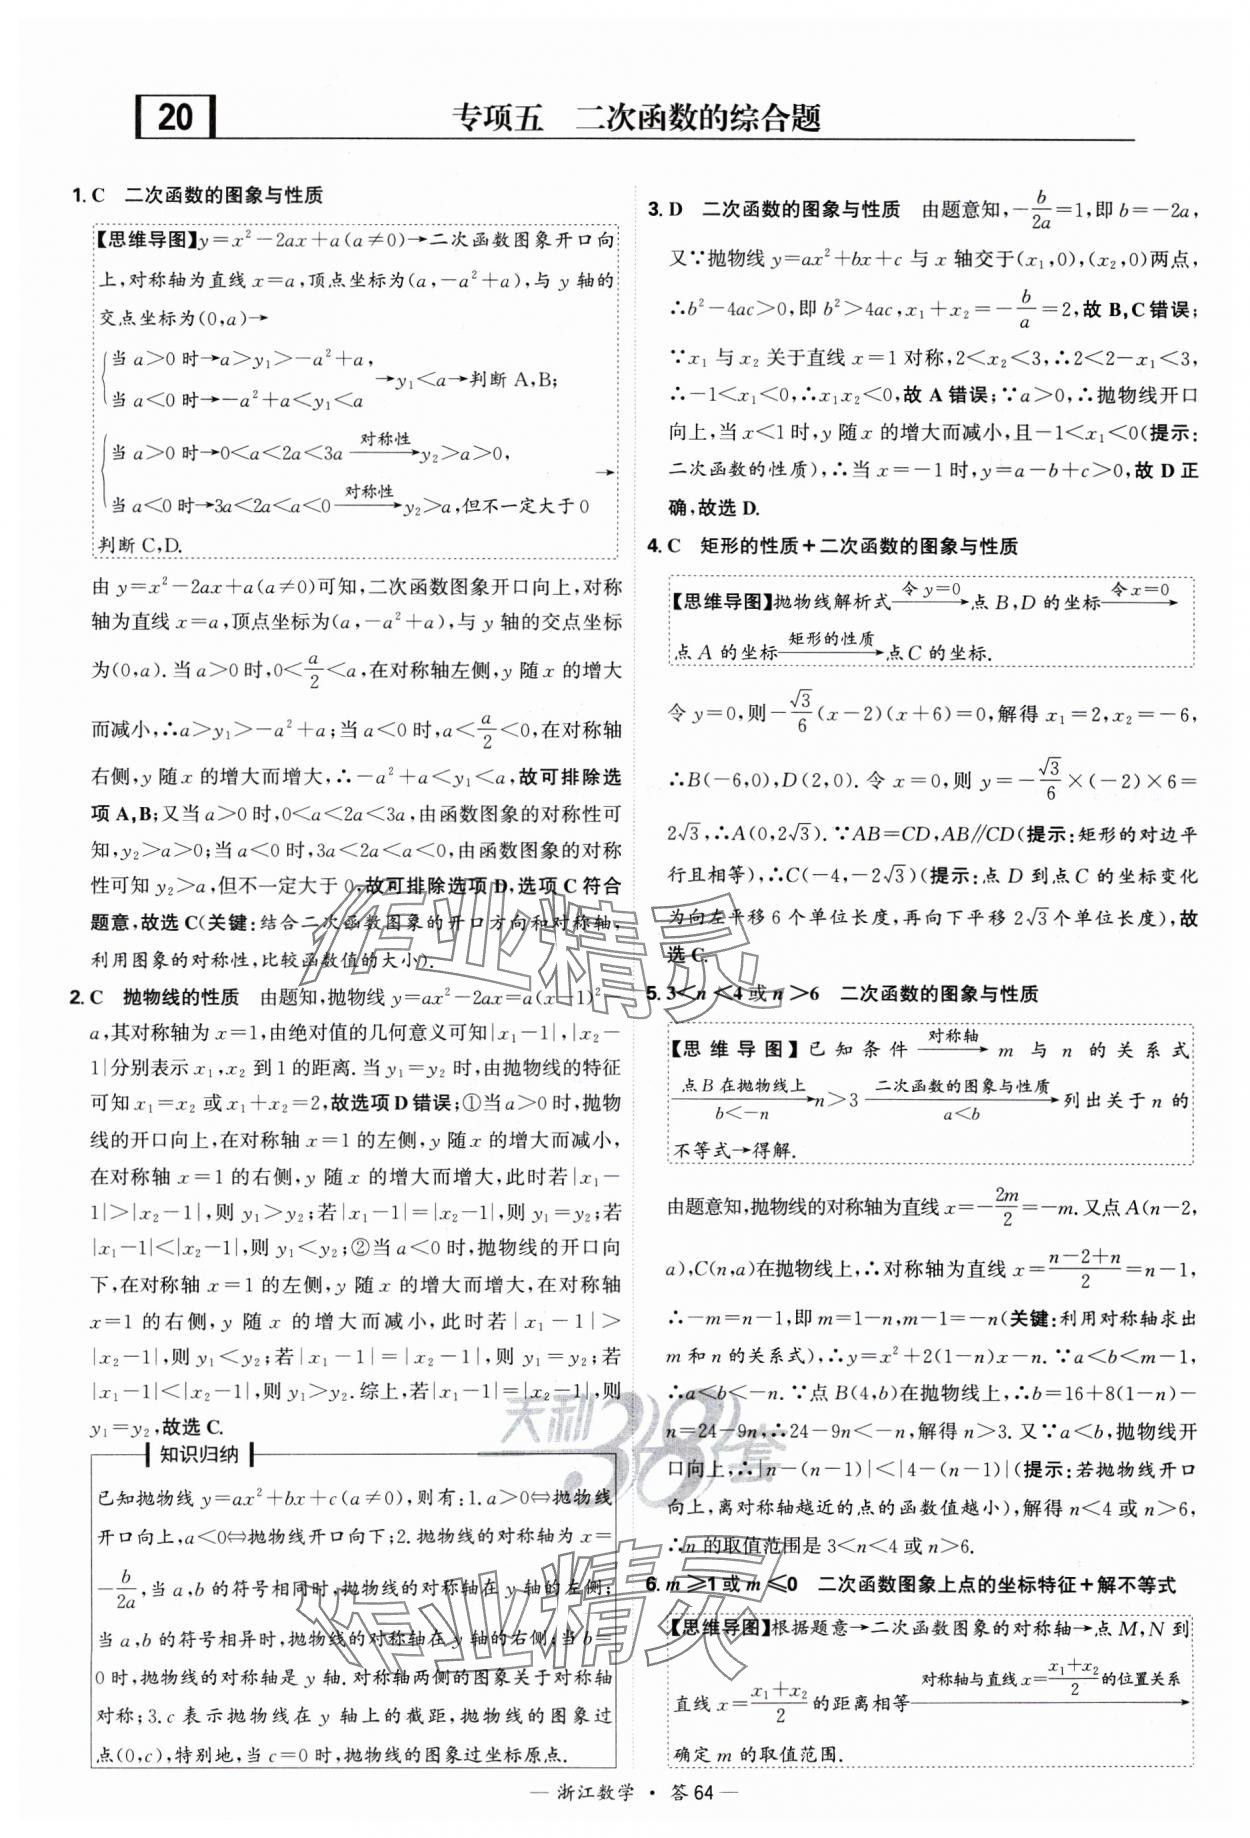 20 专项五 二次函数的综合题
1. C 二次函数的图象与性质
【思维导图】y=x²-2ax+a(a≠0)→二次函数图象开口向
上,对称轴为直线 x=a,顶点坐标为(a,-a²+a),与 y 轴的
交点坐标为(0,a)→
当 a>0 时→a>y₁>-a²+a,
→y₁<a→判断 A,B;
当 a<0 时→-a²+a<y₁<a
当 a>0 时→0<a<2a<3a 对称性→y₂>a>0,
→
当 a<0 时→3a<2a<a<0 对称性→y₂>a,但不一定大于 0
判断 C,D.
由 y=x²-2ax+a(a≠0)可知,二次函数图象开口向上,对称
轴为直线 x=a,顶点坐标为(a,-a²+a),与 y 轴的交点坐标
为(0,a).当 a>0 时,0<a/2<a,在对称轴左侧,y 随 x 的增大
而减小,∴a>y₁>-a²+a;当 a<0 时,a<a/2<0,在对称轴
右侧,y 随 x 的增大而增大,∴-a²+a<y₁<a,故可排除选
项 A,B;又当 a>0 时,0<a<2a<3a,由函数图象的对称性可
知,y₂>a>0;当 a<0 时,3a<2a<a<0,由函数图象的对称
性可知 y₂>a,但不一定大于 0,故可排除选项 D,选项 C 符合
题意,故选 C(关键:结合二次函数图象的开口方向和对称轴,
利用图象的对称性,比较函数值的大小).
2. C 抛物线的性质 由题知,抛物线 y=ax²-2ax=a(x-1)²-
a,其对称轴为 x=1,由绝对值的几何意义可知|x₁-1|,|x₂-
1|分别表示 x₁,x₂ 到 1 的距离.当 y₁=y₂ 时,由抛物线的特征
可知 x₁=x₂ 或 x₁+x₂=2,故选项 D 错误;①当 a>0 时,抛物
线的开口向上,在对称轴 x=1 的左侧,y 随 x 的增大而减小,
在对称轴 x=1 的右侧,y 随 x 的增大而增大,此时若|x₁-
1|>|x₂-1|,则 y₁>y₂;若|x₁-1|=|x₂-1|,则 y₁=y₂;若
|x₁-1|<|x₂-1|,则 y₁<y₂;②当 a<0 时,抛物线的开口向
下,在对称轴 x=1 的左侧,y 随 x 的增大而增大,在对称轴
x=1 的右侧,y 随 x 的增大而减小,此时若|x₁-1|>
|x₂-1|,则 y₁<y₂;若|x₁-1|=|x₂-1|,则 y₁=y₂;若
|x₁-1|<|x₂-1|,则 y₁>y₂.综上,若|x₁-1|=|x₂-1|,则
y₁=y₂,故选 C.
知识归纳
已知抛物线 y=ax²+bx+c(a≠0),则有:1.a>0⇔抛物线
开口向上,a<0⇔抛物线开口向下;2.抛物线的对称轴为 x=
-b/2a,当 a,b 的符号相同时,抛物线的对称轴在 y 轴的左侧;
当 a,b 的符号相异时,抛物线的对称轴在 y 轴的右侧;当 b=
0 时,抛物线的对称轴是 y 轴.对称轴两侧的图象关于对称轴
对称;3.c 表示抛物线在 y 轴上的截距,抛物线的图象过
点(0,c),特别地,当 c=0 时,抛物线的图象过坐标原点.
3. D 二次函数的图象与性质 由题意知,-b/2a=1,即 b=-2a,
又∵抛物线 y=ax²+bx+c 与 x 轴交于(x₁,0),(x₂,0)两点,
∴b²-4ac>0,即 b²>4ac,x₁+x₂=-b/a=2,故 B,C 错误;
∵x₁ 与 x₂ 关于直线 x=1 对称,2<x₂<3,∴2<2-x₁<3,
∴-1<x₁<0,∴x₁x₂<0,故 A 错误;∵a>0,∴抛物线开口
向上,当 x<1 时,y 随 x 的增大而减小,且-1<x₁<0(提示:
二次函数的性质),∴当 x=-1 时,y=a-b+c>0,故 D 正
确,故选 D.
4. C 矩形的性质+二次函数的图象与性质
【思维导图】抛物线解析式 令 y=0→点 B,D 的坐标 令 x=0→
点 A 的坐标 矩形的性质→点 C 的坐标.
令 y=0,则-√3/6(x-2)(x+6)=0,解得 x₁=2,x₂=-6,
∴B(-6,0),D(2,0).令 x=0,则 y=-√3/6×(-2)×6=
2√3,∴A(0,2√3).∵AB=CD,AB∥CD(提示:矩形的对边平
行且相等),∴C(-4,-2√3)(提示:点 D 到点 C 的坐标变化
为向左平移 6 个单位长度,再向下平移 2√3 个单位长度),故
选 C.
5. 3<n<4 或 n>6 二次函数的图象与性质
【思维导图】已知条件 对称轴→ m 与 n 的关系式
点 B 在抛物线上 b<-n→n>3 二次函数的图象与性质 a<b→列出关于 n 的
不等式→得解.
由题意知,抛物线的对称轴为直线 x=-2m/2=-m.又点 A(n-2,
a),C(n,a)在抛物线上,∴对称轴为直线 x=(n-2+n)/2=n-1,
∴-m=n-1,即 m=1-n,m-1=-n(关键:利用对称轴求出
m 和 n 的关系式),∴y=x²+2(1-n)x-n.∵a<b<m-1,
∴a<b<-n.∵点 B(4,b)在抛物线上,∴b=16+8(1-n)-
n=24-9n,∴24-9n<-n,解得 n>3.又∵a<b,抛物线开
口向上,∴|n-(n-1)|<|4-(n-1)|(提示:若抛物线开口
向上,离对称轴越近的点的函数值越小),解得 n<4 或 n>6,
∴n 的取值范围是 3<n<4 或 n>6.
6. m≥1 或 m≤0 二次函数图象上点的坐标特征+解不等式
【思维导图】根据题意→二次函数图象的对称轴→点 M,N 到
直线 x=(x₁+x₂)/2 的距离相等 对称轴与直线 x=(x₁+x₂)/2 的位置关系→
确定 m 的取值范围.
天利38套
作业精灵
作业精灵
— 浙江数学 · 答 64 —